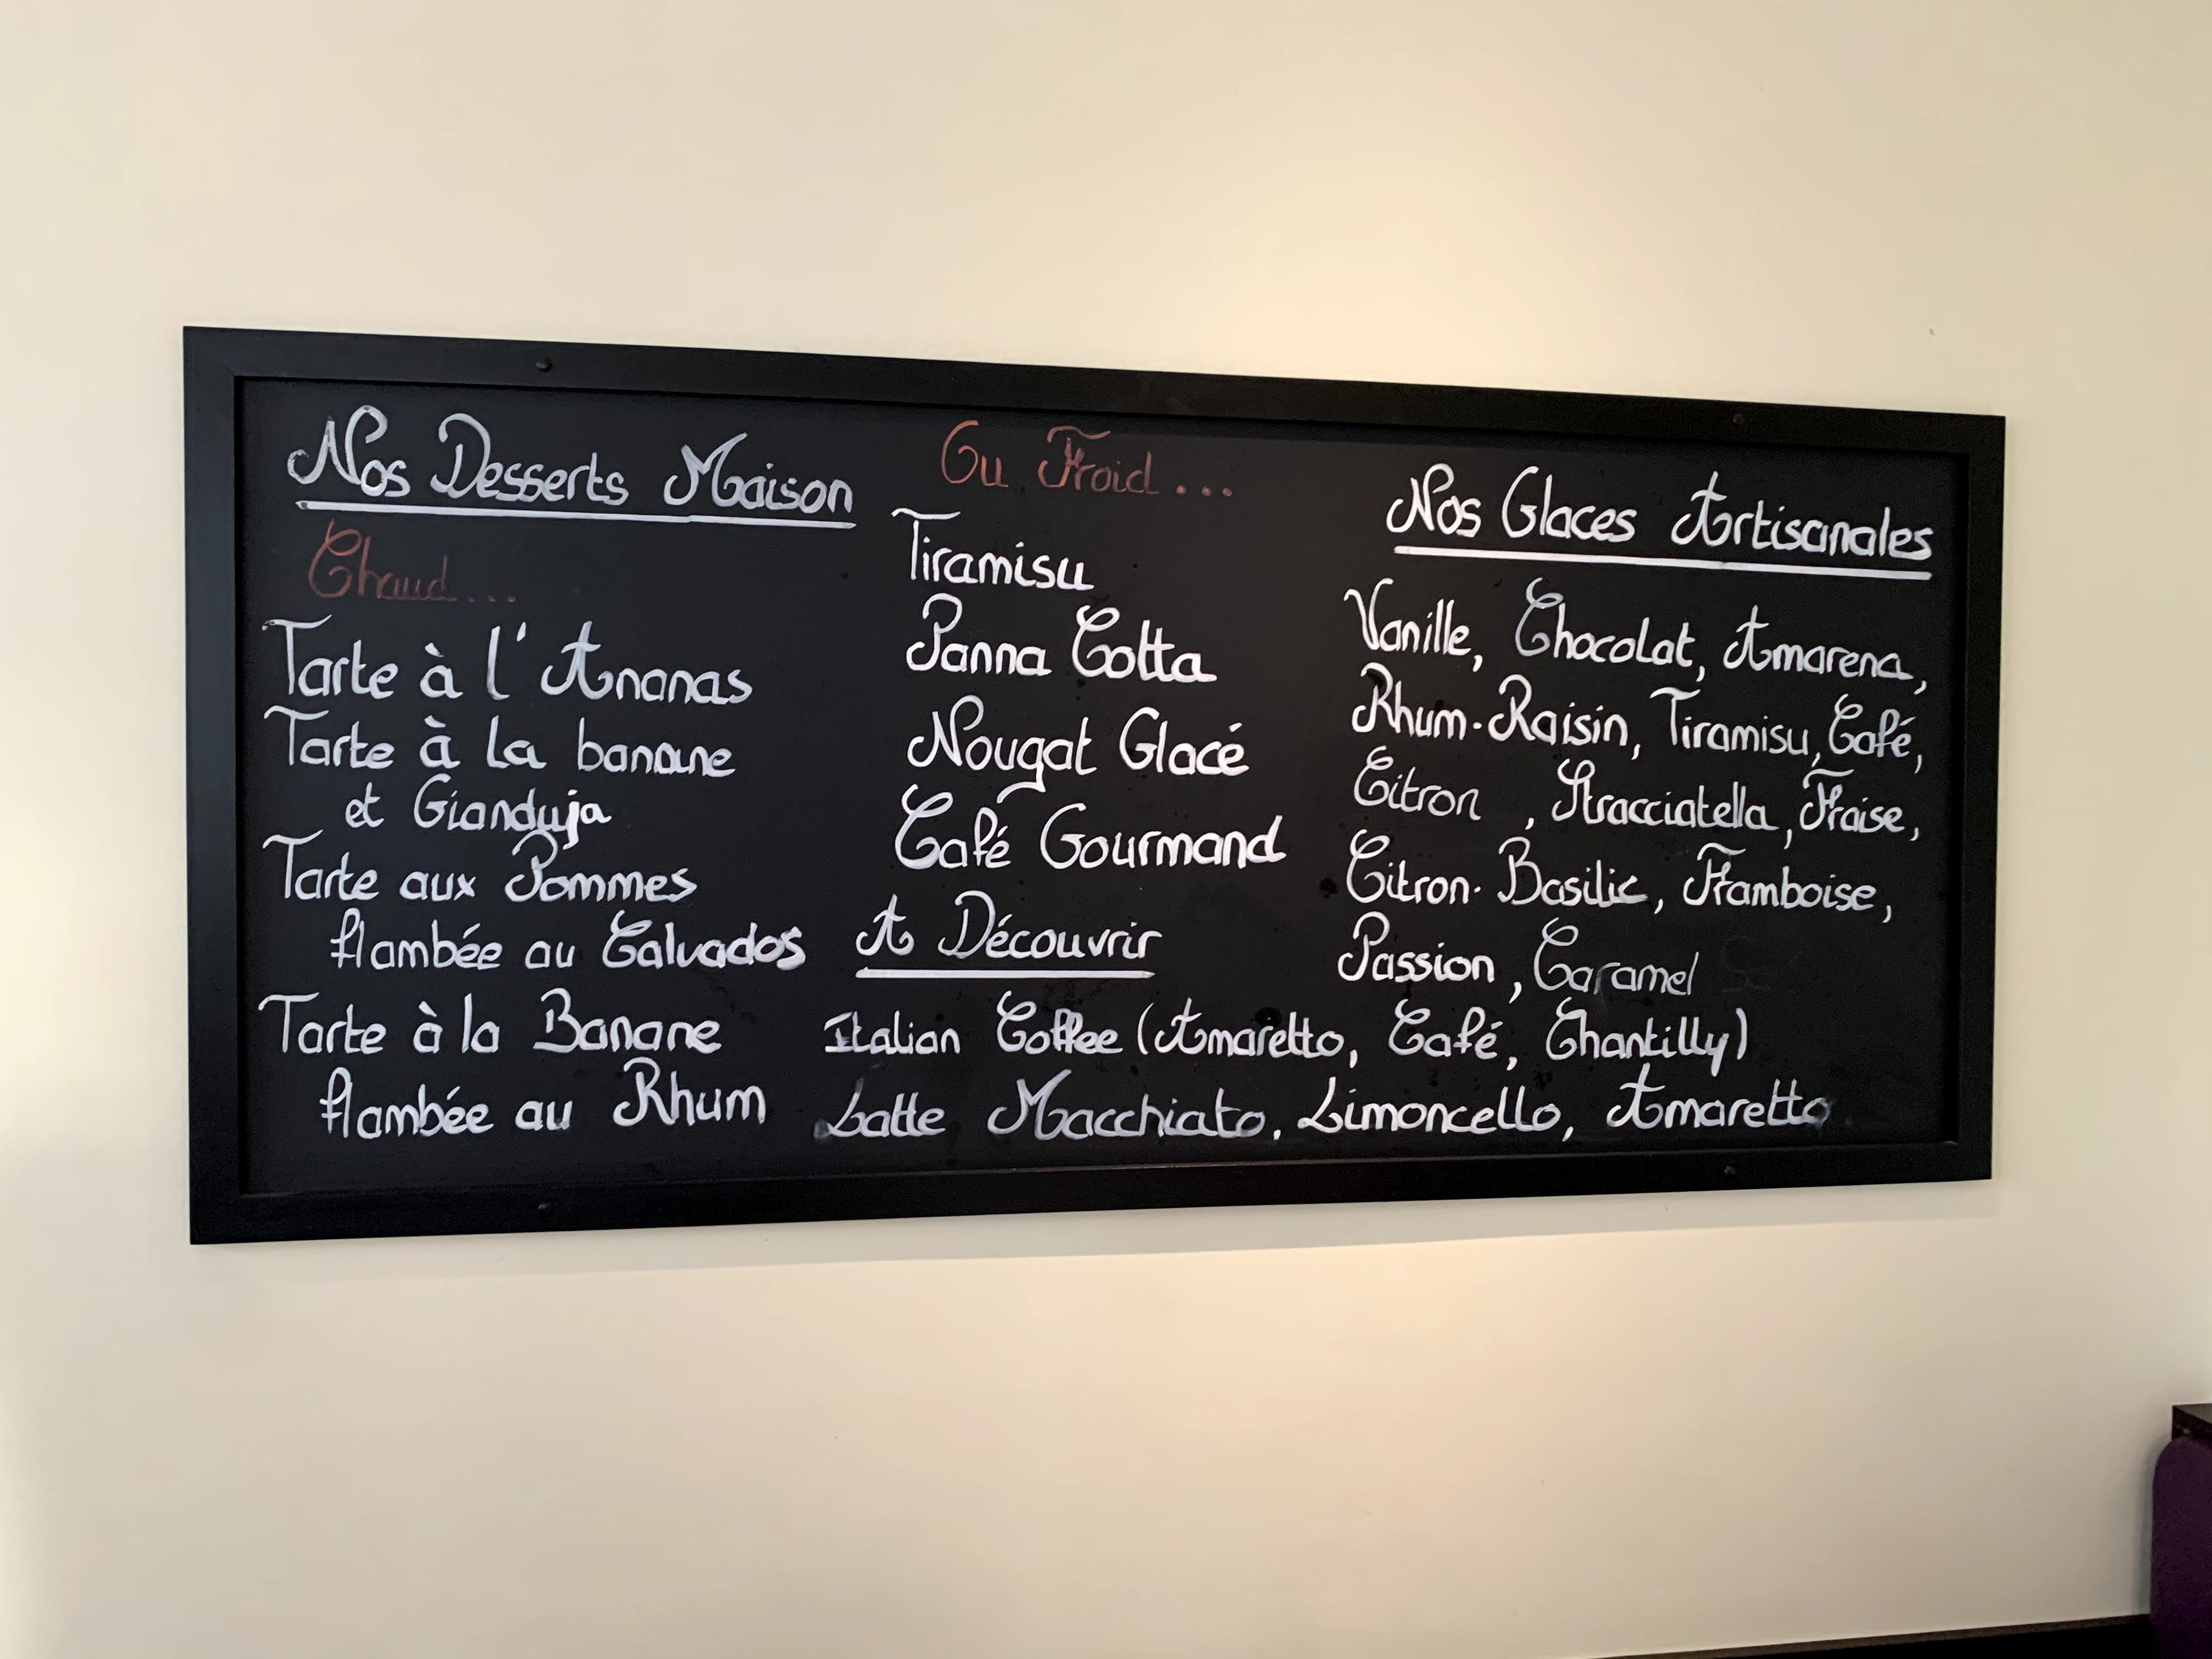 Nos Desserts Maison
Chaud...
Tarte à l'Ananas
Tarte à la banane
et Gianduja
Tarte aux Pommes
flambée au Calvados
Tarte à la Banane
flambée au Rhum
Ou Froid...
Tiramisu
Panna Cotta
Nougat Glacé
Café Gourmand
A Découvrir
Italian Coffee (Amaretto, Café, Chantilly)
Latte Macchiato, Limoncello, Amaretto
Nos Glaces Artisanales
Vanille, Chocolat, Amarena,
Rhum-Raisin, Tiramisu, Café,
Citron , Stracciatella, Fraise,
Citron-Basilic, Framboise,
Passion, Caramel